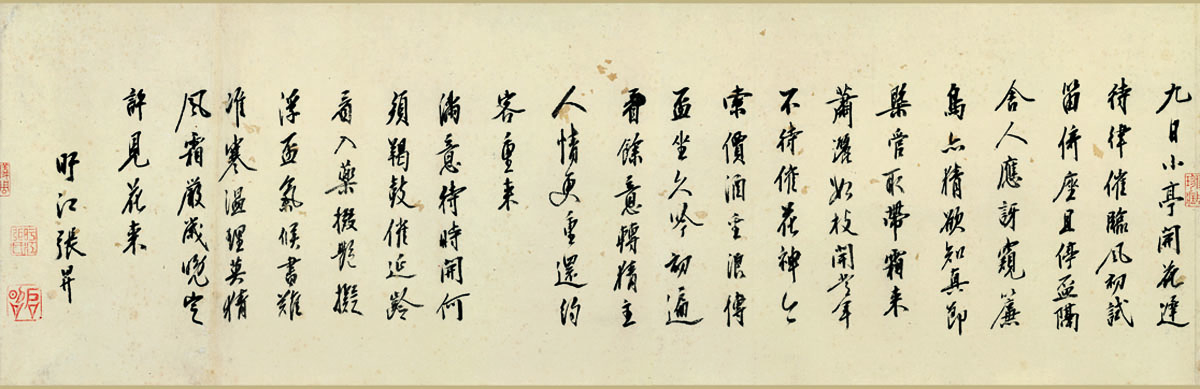 九日小亭開花遲
待律催臨風初試
笛倚座且停盃隔
舍人應訝窺簾
鳥亦猜欲知真節
槩管取帶霜来
蕭灑數枝開當年
不待催花神今
索價酒聖浪傳
盃坐久吟初遍
看餘意轉猜主
人情更重還約
客重来
滿意待時開何
須羯鼓催延齡
看入藥掇艷擬
浮盃氣候書難
准寒溫理莫猜
風霜嚴歲晚定
許見花来
盱江張昇